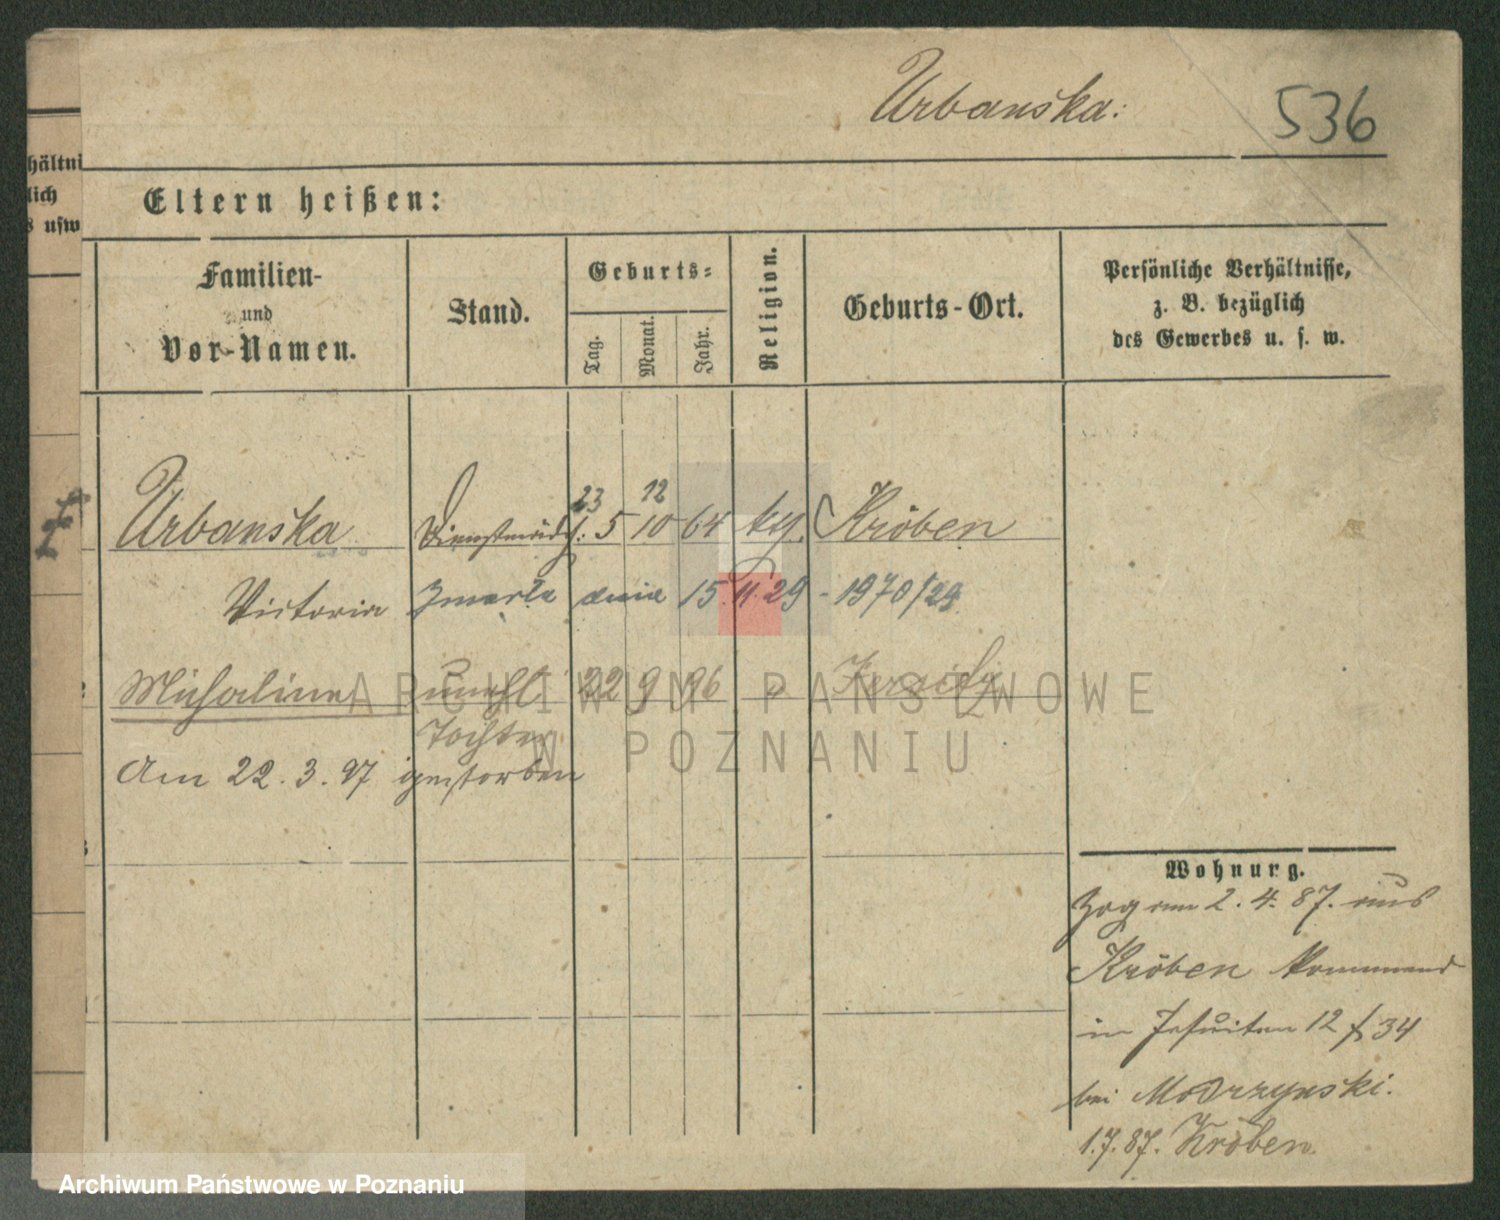 Urbanska:
536
hältni
lich
s usw
Eltern heißen:
Familien-
und
Vor-Namen.
Stand.
Geburts-
Tag.
Monat.
Jahr.
Religion.
Geburts-Ort.
Persönliche Verhältnisse,
z. B. bezüglich
des Gewerbes u. s. w.
23 12
Urbanska Dienstmädch: 5 10 64 kth. Kröben
Victoria Zmarła dnia 15.11.29 - 1970/29
Michalina unehl 22 9 96
Tochter
Am 22.3.97 gestorben
Wohnung.
Zog am 2.4.87. aus
Kröben kommend
in Jesuiten 12 34
bei Modrzynski.
1.7.87. Kröben.
ARCHIWUM PAŃSTWOWE
W POZNANIU
Archiwum Państwowe w Poznaniu